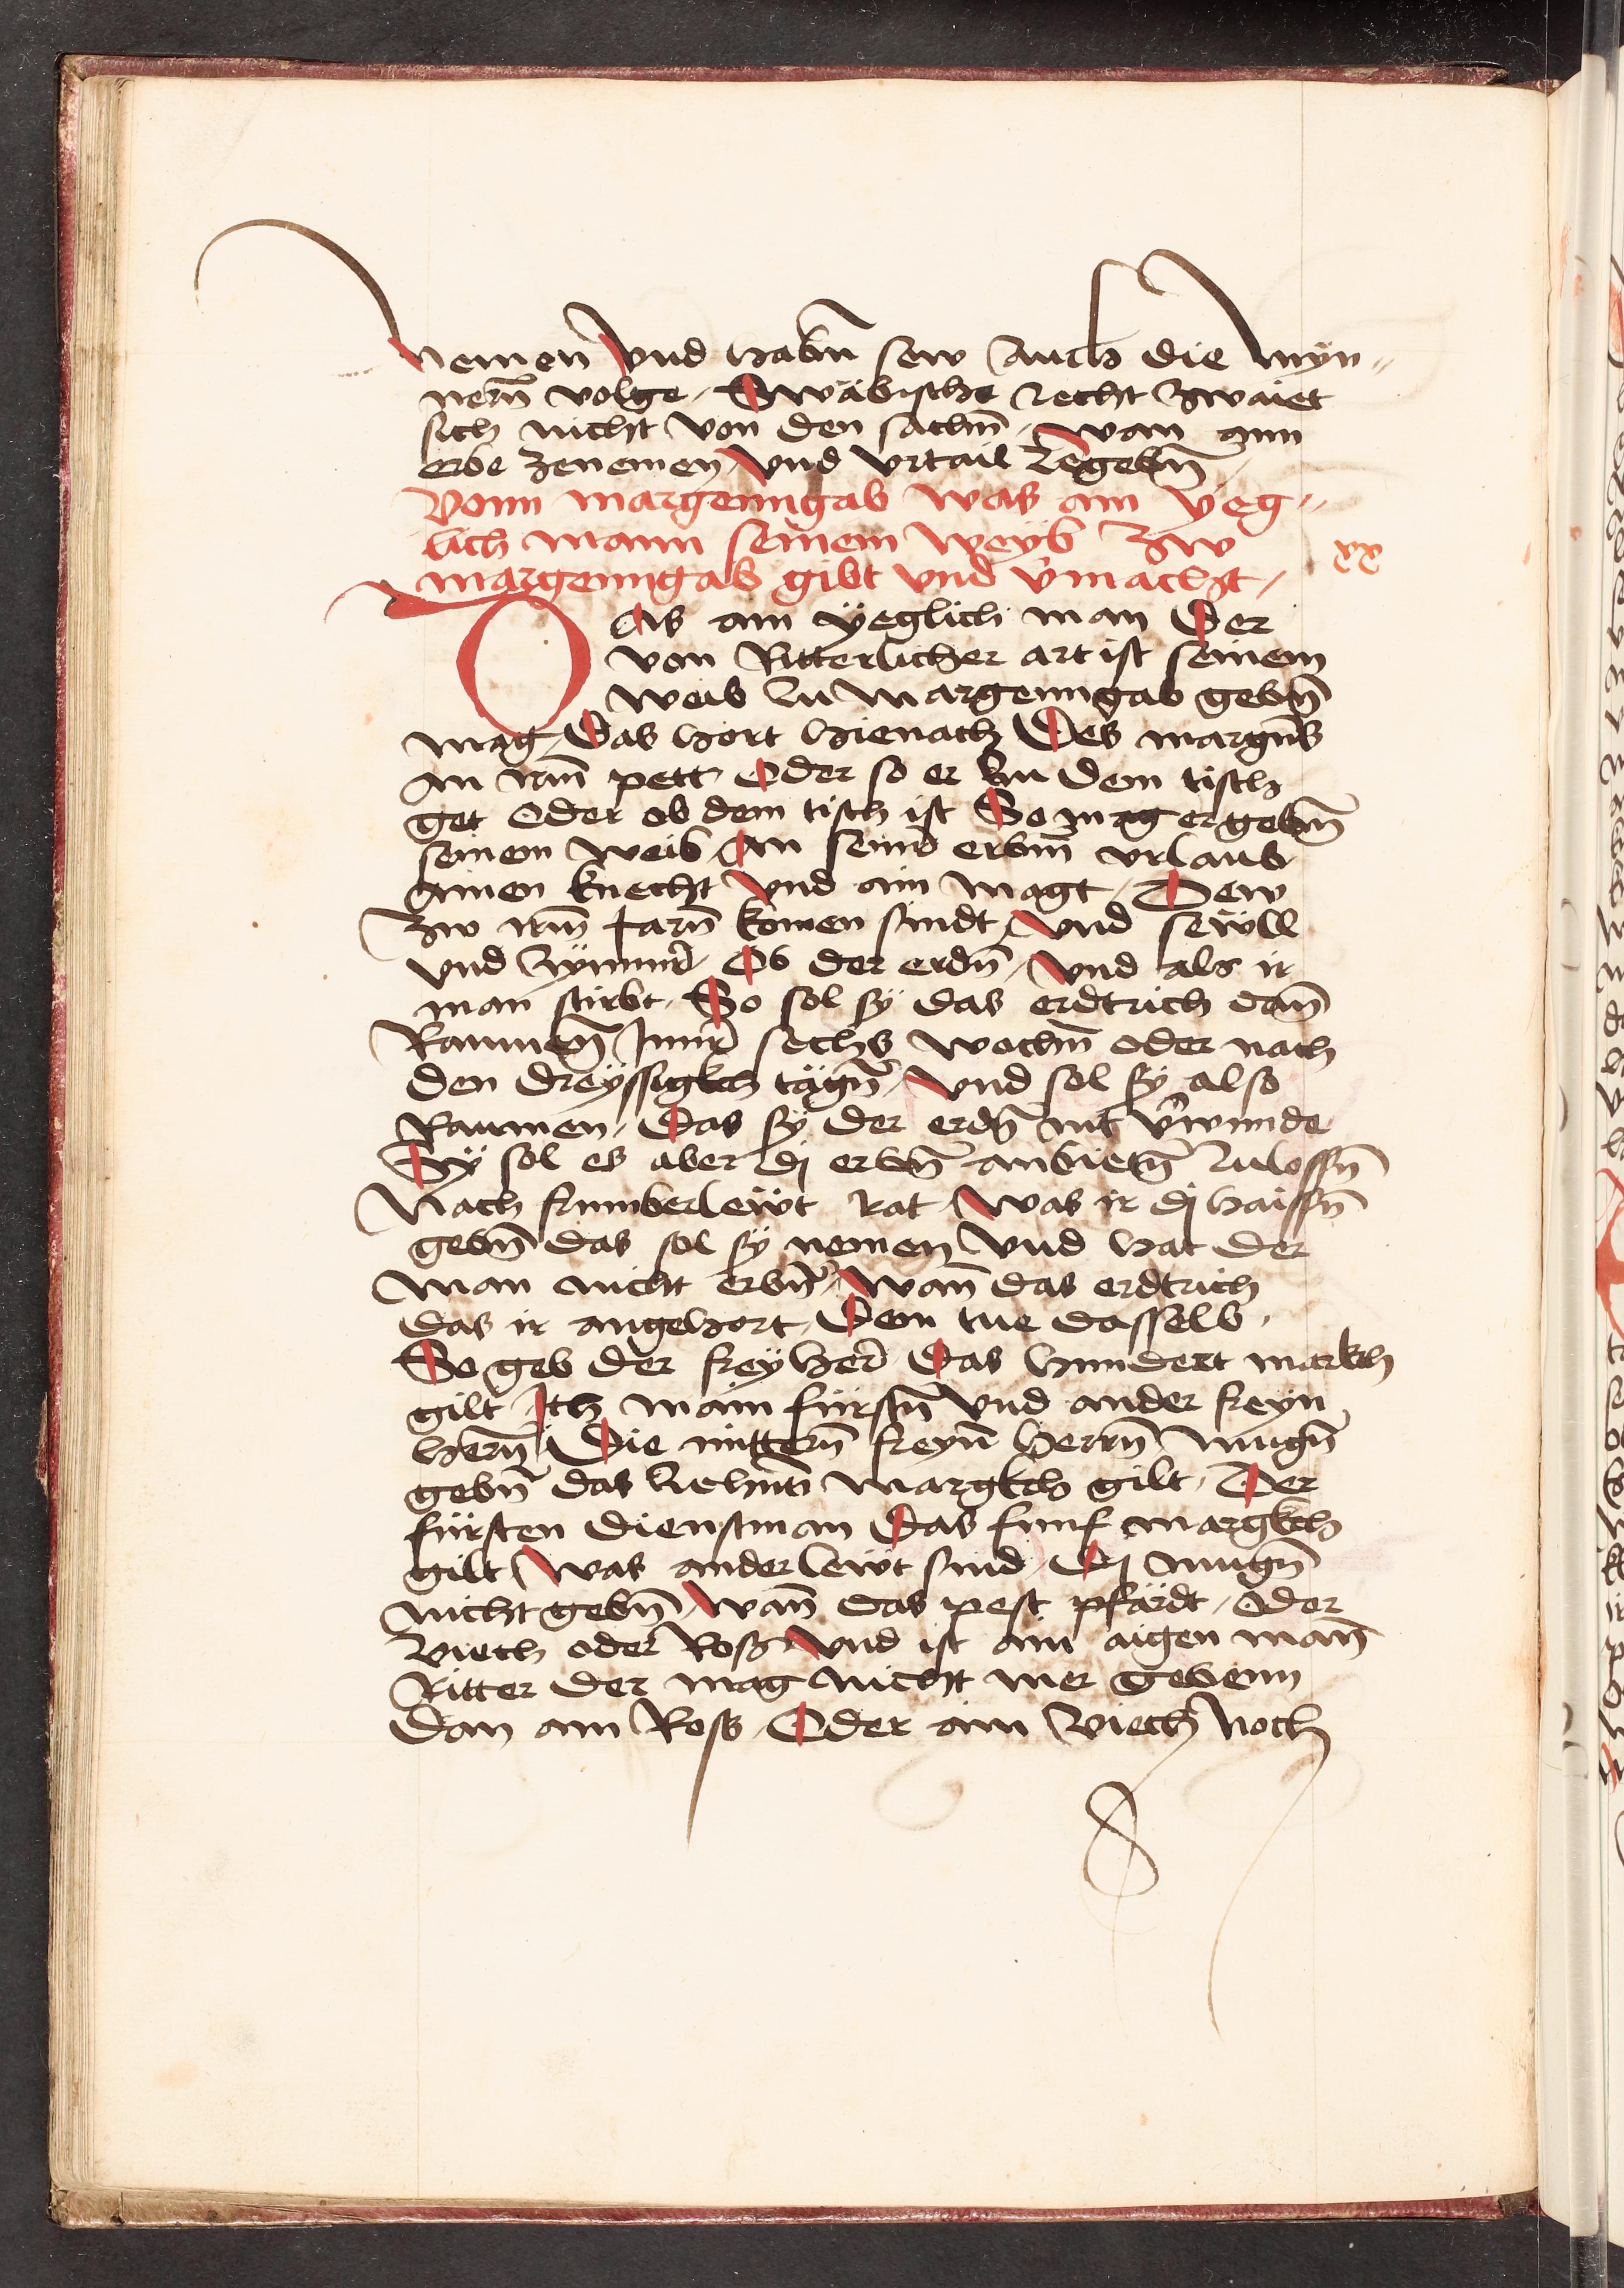 nemen vnd habn̄ sew auch die myn„
nern̄ volge / Swäbische recht zwaiet
sich nicht von den sachn̄ / wan ann
erbe zenemen / vnd vrtail zegebn̄
Vonn margenngab was ain yeg„
lich mann seinem weyb zw
margenngab gibt vnd v̄macht /
xx
Was ain yeglich man der
von Ritterlicher art ist seinem
weib zu margenngab gebn̄
mag / Das hort hienach Des margn̄s
an irm̄ pett Oder so er zu dem tisch
get oder ob dem tisch ist So mag er gebn̄
seinem weib an seinr̄ erbm̄ vrlaub
ainen knecht vnd ain magt / Dew
zw irn̄ Jarn̄ komen sindt / vnd sewll
vnd zymmr̄ / Ob der erdn̄ / vnd als ir
man stirbt / So sol sy das erdtrich dan̄
Raumen̄ Innr̄ sechs wochn̄ oder nach
den dreyssigkch tägn̄ / vnd sol sy also
Raumen / Das sy der erdn̄ nit v̄wunde
Sy sol es aber dj erbn̄ anbietn̄ zulossn̄
Nach frumberlewt rat / was ir dj haissn̄
gebn̄ das sol sy nemen vnd hat der
man nicht erbn̄ / wan̄ das erdtrich
das ir angehort / Dem tue dasselb /
So geb der frey her̄ Das hundert markch
gilt Ich main fürstn̄ vnd ander freyn
hern̄ / Die mittern̄ freyn̄ herrn̄ mugn̄
gebn̄ das zehnn̄ margkch gilt / Der
fürsten dienstman Das funf margkch
gilt / was ander lewt sind / Dj mugn̄
nicht gebn̄ / wan̄ das pest pfärdt / oder
viech oder Ross / vnd ist ain aigen man̄
Ritter der mag nicht mer gebenn
dan ain Ross / Oder ain viech noch